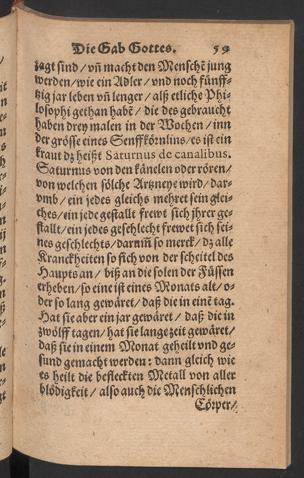 Die Gab Gottes. 59
zagt sind / vñ macht den Menschẽ jung
werden / wie ein Adler / vnd noch fünff-
tzig jar leben vñ lenger / alß etliche Phi-
losophi gethan habẽ / die des gebraucht
haben drey malen in der Wochen / inn
der grösse eines Senffkörnlins / es ist ein
kraut dz heißt Saturnus de canalibus.
Saturnus von den känelen oder rören /
von welchen sölche Artzneye wird / dar-
vmb / ein jedes gleichs mehret sein glei-
ches / ein jede gestalt frewt sich jhrer ge-
stalt / ein jedes geschlecht frewet sich sei-
nes geschlechts / darum̃ so merck / dz alle
Kranckheiten so sich von der scheitel des
Haupts an / biß an die solen der Füssen
erheben / so eine ist eines Monats alt / o-
der so lang gewäret / daß die in einẽ tag.
Hat sie aber ein jar gewäret / daß die in
zwölff tagen / hat sie lange zeit gewäret /
daß sie in einem Monat geheilt vnd ge-
sund gemacht werden: dann gleich wie
es heilt die befleckten Metall von aller
blödigkeit / also auch die Menschlichen
Cörper /